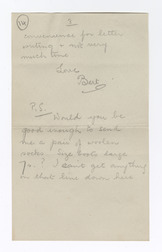 3
convenience for better
writing & not very
much time
Love
Bert
P.S.
Would you be
good enough to send
me a pair of woolen
socks. size
? I can't get anything
in that line down here